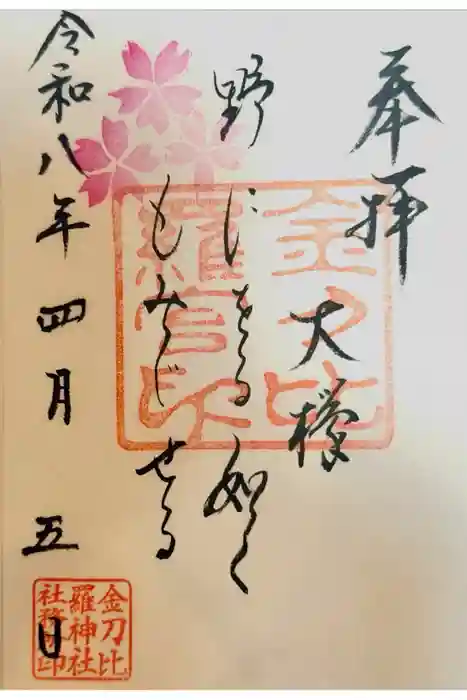 奉拝
大欅
野に 如く
もみじせる
令和八年四月五日
金刀比
羅宮印
金刀比
羅神社
社務所印